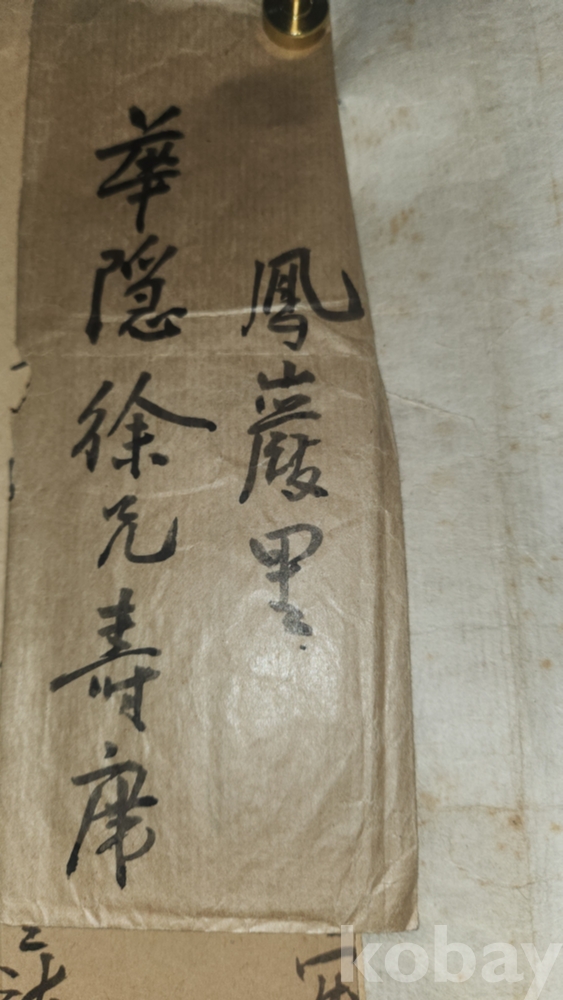 鳳巖里
華隱徐兄壽席
kobay